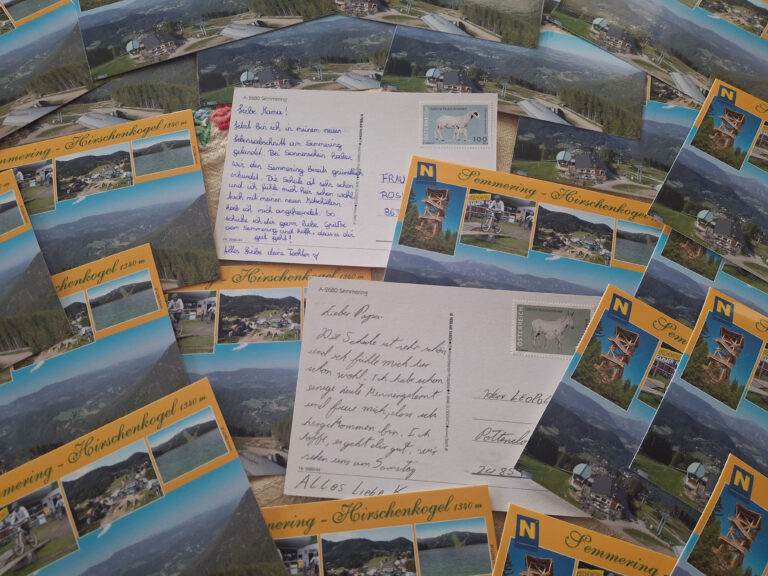 Semmering - Hirschenkogel 1340 m
A-2680 Semmering
Liebe Mama!
Jetzt bin ich in meinem neuen
Lebensabschnitt am Semmering
gelandet. Bei Sonnenschein haben
wir den Semmering bereits gründlich
erkundet. Die Schule ist sehr schön
und ich fühle mich hier schon wohl.
Auch mit meinen neuen Mitschülern
hab ich mich angefreundet. So
schicke ich dir ganz liebe Grüße
vom Semmering und hoffe, dass es dir
gut geht!
Alles Liebe deine Tochter
100
FRAU
ROS
86
N
Semmering - Hirschenkogel
Hirschenkogel 1340 m
Hirschenkogel 1340 m
A-2680 Semmering
Lieber Papa!
Die Schule ist sehr schön
und ich fühle mich hier
schon wohl. Ich habe schon
einige Leute kennengelernt
und freue mich, dass ich
hergekommen bin. Ich
hoffe, es geht dir gut, wir
sehen uns am Samstag
ALLES LIEBE K
ÖSTERREICH
Herr Leopold
Pottend
2485
N
N
N
N
Semmering - Hirschenkogel 1340 m
Semmering - Hirschenkogel 1340 m
N
Semmering